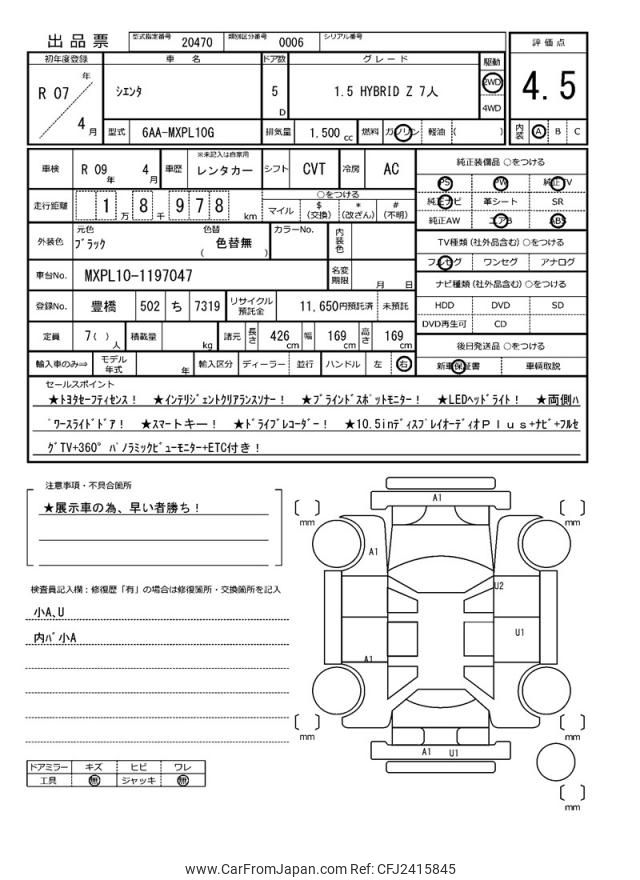 出品票
型式指定番号 20470 類別区分番号 0006 シリアル番号
初年度登録 車 名 ドア数 グレード 駆動
R 07 年 4 月 シエンタ 5 D 1.5 HYBRID Z 7人 2WD 4WD
評価点
4.5
内装 A B C
型式 6AA-MXPL10G 排気量 1.500 cc 燃料 ガソリン 軽油 ( )
車検 R 09 年 4 月 車歴 ※未記入は自家用 レンタカー シフト CVT 冷房 AC
走行距離 1 万 8 千 9 7 8 km
○をつける
マイル $ (交換) * (改ざん) # (不明)
外装色 元色 ブラック 色替 ( 色替無 ) カラーNo. 内装色
車台No. MXPL10-1197047 名変期限 月 日
登録No. 豊橋 502 ち 7319 リサイクル預託金 11,650円預託済 未預託
定員 7( ) 人 積載量 kg 諸元 長さ 426 cm 幅 169 cm 高さ 169 cm
輸入車のみ⇒ モデル年式 年 輸入区分 ディーラー 並行 ハンドル 左 右
純正装備品 ○をつける
PS PW 純正TV
純正ナビ 革シート SR
純正AW エアB ABS
TV種類 (社外品含む) ○をつける
フルセグ ワンセグ アナログ
ナビ種類 (社外品含む) ○をつける
HDD DVD SD
DVD再生可 CD
後日発送品 ○をつける
新車保証書 車輌取説
セールスポイント
★トヨタセーフティセンス! ★インテリジェントクリアランスソナー! ★ブラインドスポットモニター! ★LEDヘッドライト! ★両側ハ
゚ワースライドドア! ★スマートキー! ★ドライブレコーダー! ★10.5inディスプレイオーディオPlus+ナビ+フルセ
グTV+360° パノラミックビューモニター+ETC付き!
注意事項・不具合箇所
★展示車の為、早い者勝ち!
検査員記入欄:修復歴「有」の場合は修復箇所・交換箇所を記入
小A、U
内バ小A
ドアミラー キズ ヒビ ワレ
工具 無 ジャッキ 無
A1
mm
mm
A1
U2
U1
A1
mm
mm
A1 U1
mm
www.CarFromJapan.com Ref: CFJ2415845